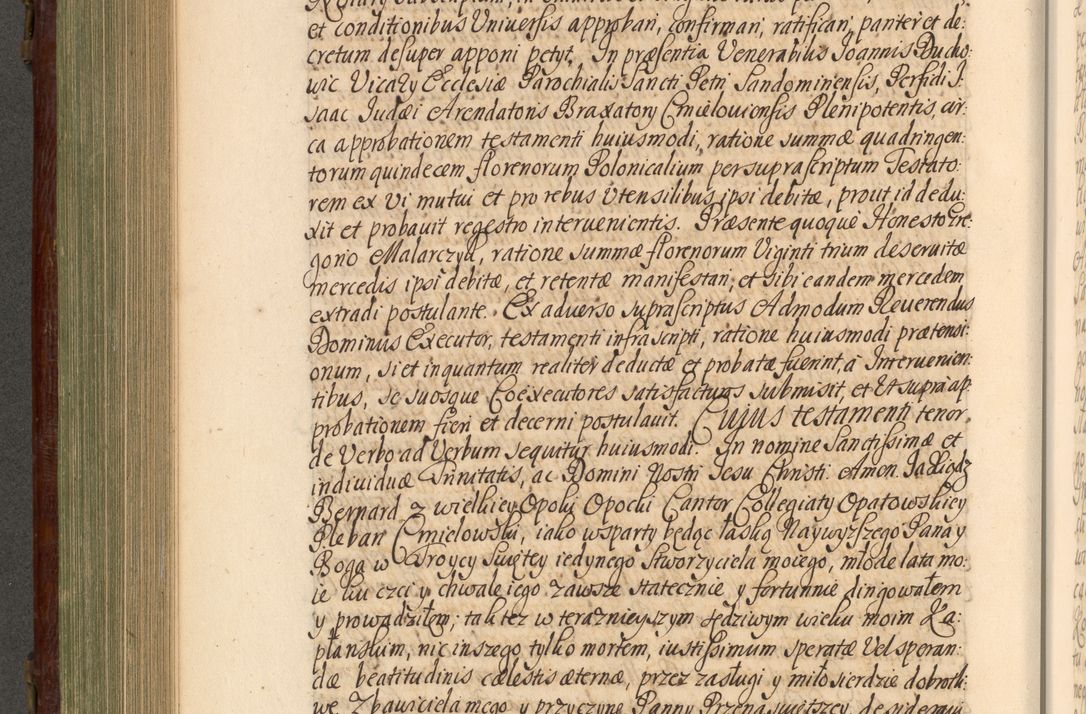 et conditionibus Universis approbari, confirmari, ratificari, pariter et de:
cretum desuper apponi petyt. In præsentia Venerabilis Joannis Ducho:
wic Vicary Ecclesiæ Parochialis Sancti Petri Sandomiriensis, Perfidi J:
saac Judæi Arendatoris Braxatory Cmielouiensis Plenipotentis, cir:
ca approbationem testamenti huiusmodi, ratione summæ quadringen:
torum quindecem florenorum Polonicalium per suprascriptum Testato:
rem ex vi mutui et pro rebus Utensilibus ipsi debitæ, prout id dedu:
xit et probauit regestro intervenientis. Præsente quoque Honesto Gre:
gorio Malarczyk, ratione summæ florenorum Viginti trium deseruitæ
mercedis ipsi debitæ, et retentæ manifestari, et sibi eandem mercedem
extradi postulante. Ex adverso suprascriptus Admodum Reverendus
Dominus Executor, testamenti infrascripti, ratione huiusmodi prætensi:
onum, si et inquantum realiter deductæ et probatæ fuerint, a Intervenien:
tibus, se suosque Coexecutores satisfacturos submisit, et Ut supra ap:
probationem fieri et decerni postulauit. Cuius testamenti tenor
de Verbo ad Verbum sequitur huiusmodi. In nomine Sanctissimæ et
individuæ Trinitatis, ac Domini Nostri Jesu Christi Amen. Ja Xiądz
Bernard z wielkiey Opoki Opocki Cantor Collegiaty Opatowskiey
Pleban Cmielowski, iako wsparty będąc łaską Naywyższego Pana y
Boga w Troycy Swiętey iedynego Stworzyciela moiego, młode lata mo:
ie ku czci y chwale iego zawsze statecznie y fortunnie dirigowałem
y prowadziłem, tak też w teraznieyszym sędziwym wieku moim Ka:
płanskim, nic inszego tylko mortem, iustissimum speratæ Vel speran:
dæ beatitudinis cælestis æternæ, przez zasługi y miłosierdzie dobrotli:
we Zbawiciela mego y przyczynę Panny Przenaswiętszey desideraui